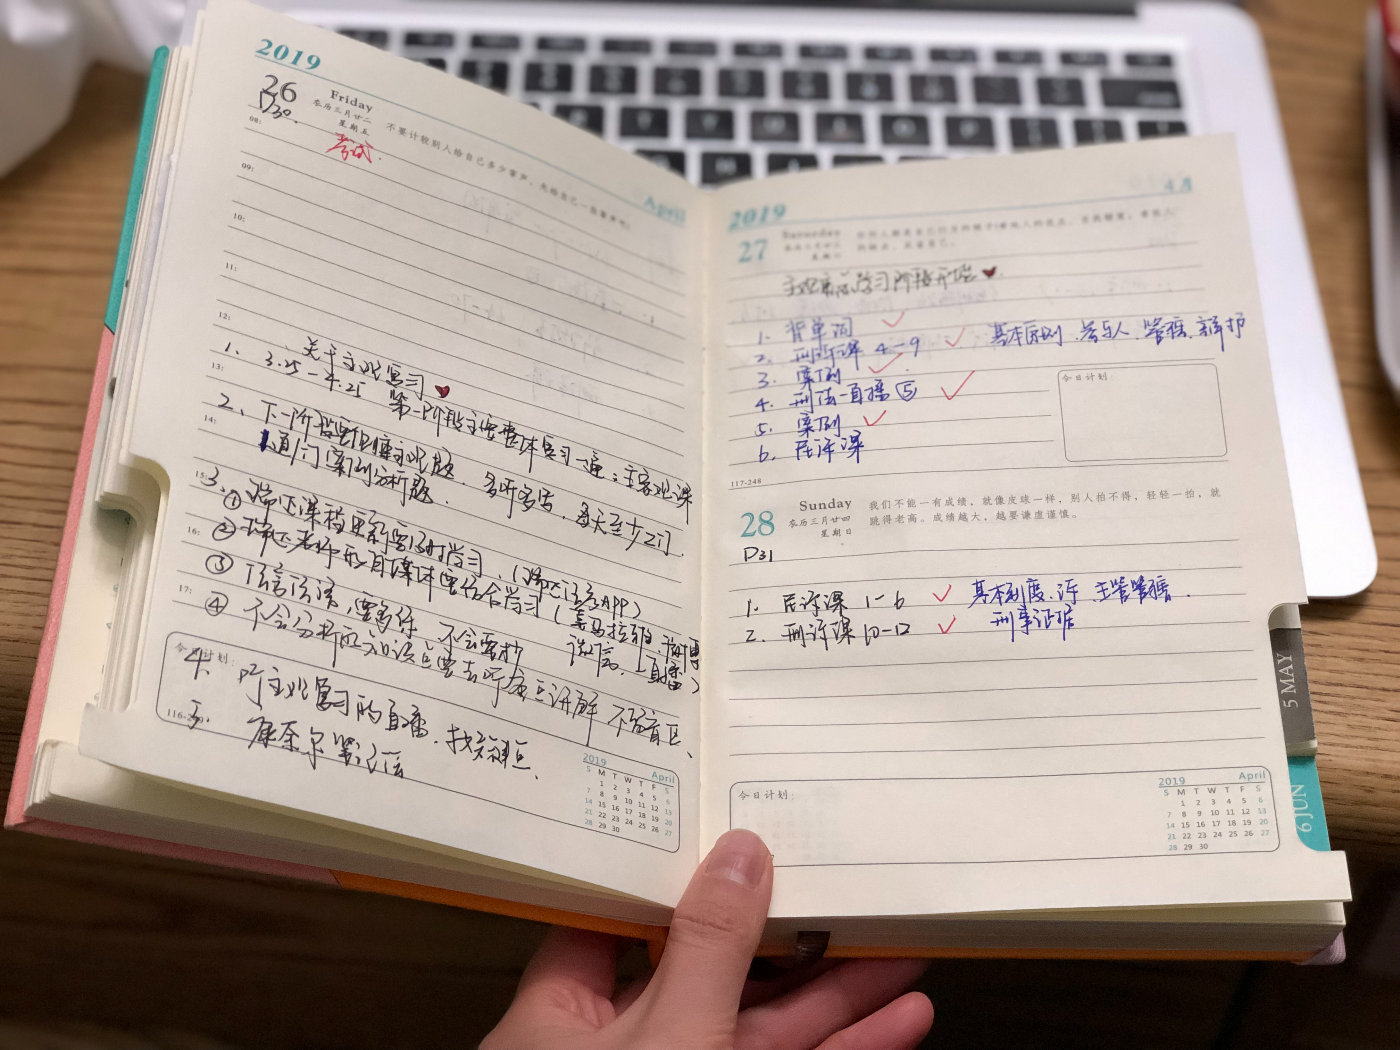 2019
26
Friday
农历三月廿二
星期五
D30.
不要计较别人给自己多少掌声，先给自己一些掌声吧！
April
考试.
08:
09:
10:
11:
12:
13:
14:
15:
16:
17:
关于主观复习 ♥
1、3.25-4.25 第一阶段主要整体复习一遍：主客观课
2、下一阶段要侧重主观题．多听多写，每天至少2门．
1通门案例分析题．
3、① 瑞达课程更新要及时学习．(瑞达法考APP)
② 瑞达老师形自媒体要结合学习
③ 法言法语，要多练，不会要抄
④ 不会分析的知识点要去听查且讲解 不留盲区、
今日计划:
4、听主观复习的直播．找
5. 康奈尔笔记法
116-
2019
April
S M T W T F S
1 2 3 4 5 6
7 8 9 10 11 12 13
14 15 16 17 18 19 20
21 22 23 24 25 26 27
28 29 30
2019
4月
27
Saturday
农历三月廿三
星期六
学习阶段开始 ♥
1. 背单词 ✓
2. 刑诉课 4-9 ✓ 基本原则．参与人．管辖、辩护
3. 案例 ✓
4. 刑法-直播⑤ ✓
5. 案例 ✓
6. 民诉课
今日计划:
117-248
28
Sunday
农历三月廿四
星期日
我们不能一有成绩，就像皮球一样，别人拍不得，轻轻一拍，就
跳得老高。成绩越大，越要谦虚谨慎。
D31
1. 民诉课 1-6 ✓ 基本制度．诉 主管管辖．
2. 刑诉课 10-12 ✓ 刑事证据
今日计划:
2019
April
S M T W T F S
1 2 3 4 5 6
7 8 9 10 11 12 13
14 15 16 17 18 19 20
21 22 23 24 25 26 27
28 29 30
5 MAY
6 JUN